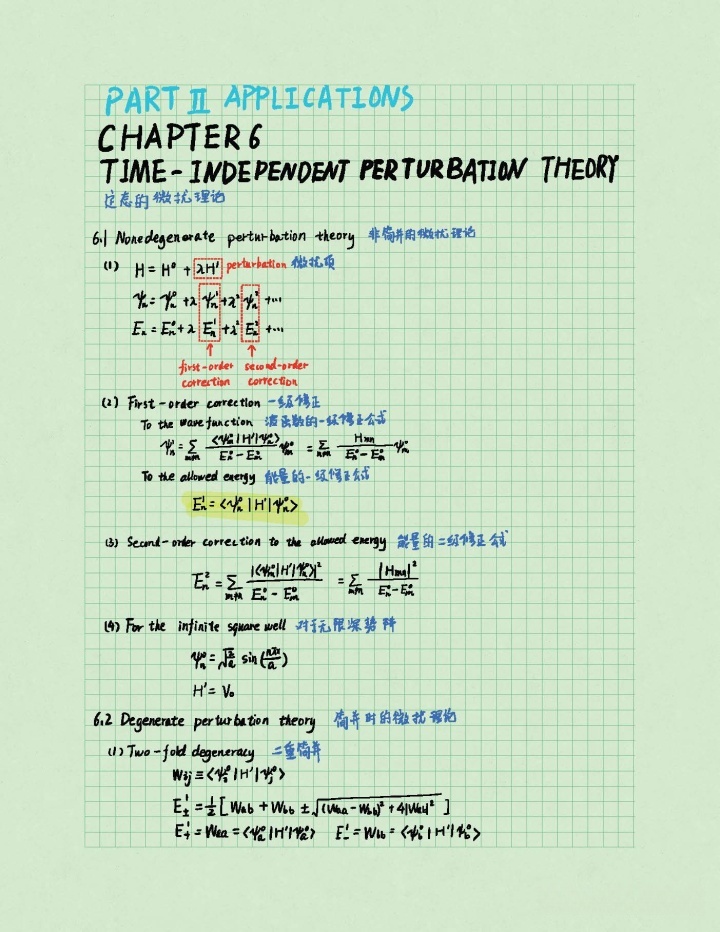 PART II APPLICATIONS
CHAPTER 6
TIME-INDEPENDENT PERTURBATION THEORY
定态的微扰理论
6.1 Nonedegenerate perturbation theory 非简并的微扰理论
(1) H = H⁰ + λH' perturbation 微扰项
ψₙ = ψₙ⁰ + λψₙ¹ + λ²ψₙ² + ...
Eₙ = Eₙ⁰ + λEₙ¹ + λ²Eₙ² + ...
first-order correction second-order correction
(2) First-order correction 一级修正
To the wave function 波函数的一级修正公式
ψₙ¹ = Σ_{m≠n} <ψₘ⁰|H'|ψₙ⁰> / (Eₙ⁰ - Eₘ⁰) ψₘ⁰ = Σ_{m≠n} Hₘₙ / (Eₙ⁰ - Eₘ⁰) ψₘ⁰
To the allowed energy 能量的一级修正公式
Eₙ¹ = <ψₙ⁰|H'|ψₙ⁰>
(3) Second-order correction to the allowed energy 能量的二级修正公式
Eₙ² = Σ_{m≠n} |<ψₘ⁰|H'|ψₙ⁰>|² / (Eₙ⁰ - Eₘ⁰) = Σ_{m≠n} |Hₘₙ|² / (Eₙ⁰ - Eₘ⁰)
(4) For the infinite square well 对于无限深势阱
ψₙ⁰ = √(2/a) sin(nπx/a)
H' = V₀
6.2 Degenerate perturbation theory 简并时的微扰理论
(1) Two-fold degeneracy 二重简并
Wij ≡ <ψᵢ⁰|H'|ψⱼ⁰>
E±¹ = ½ [Wab + Wbb ± √((Waa - Wbb)² + 4|Wab|²)]
E₊¹ = Waa = <ψa⁰|H'|ψa⁰> E₋¹ = Wbb = <ψb⁰|H'|ψb⁰>